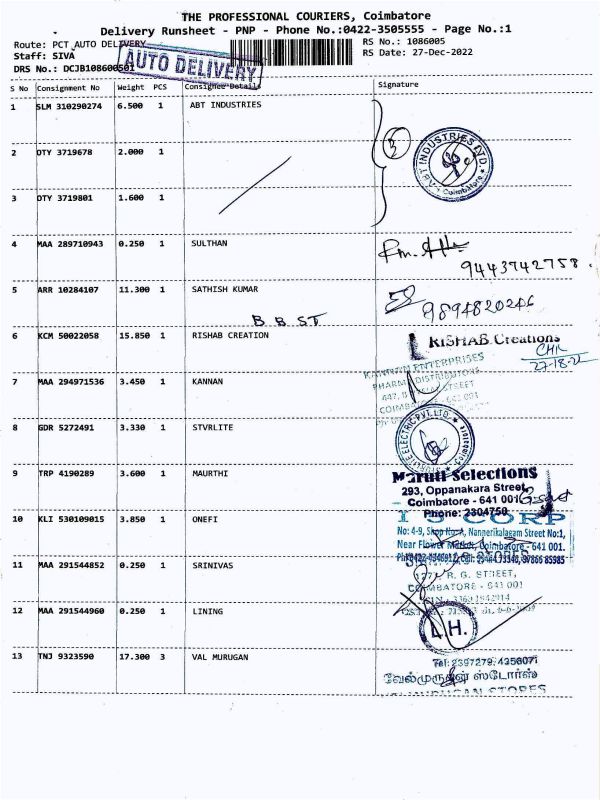 THE PROFESSIONAL COURIERS, Coimbatore
Delivery Runsheet - PNP - Phone No.:0422-3505555 - Page No.:1
Route: PCT AUTO DELIVERY
RS No.: 1086005
Staff: SIVA
RS Date: 27-Dec-2022
DRS No.: DCJB108600501
AUTO DELIVERY
S No Consignment No Weight PCS Consignee Details Signature
1 SLM 310290274 6.500 1 ABT INDUSTRIES
ABT INDUSTRIES LTD. Coimbatore
2 OTY 3719678 2.000 1
3 OTY 3719801 1.600 1
4 MAA 289710943 0.250 1 SULTHAN
9443742758.
5 ARR 10284107 11.300 1 SATHISH KUMAR
9894820246
B. B. ST
6 KCM 50022058 15.850 1 RISHAB CREATION
RISHAB Creations
KANNAN ENTERPRISES
PHARMA DISTRIBUTORS
7 MAA 294971536 3.450 1 KANNAN
8 GDR 5272491 3.330 1 STVRLITE
ELECTRIC PVT. LTD.
9 TRP 4190289 3.600 1 MAURTHI
Maruti Selections
293, Oppanakara Street,
Coimbatore - 641 001
Phone: 2304750
10 KLI 530109015 3.850 1 ONEFI
CORP
No: 4-9, Shop No:A, Nannerikalagam Street No:1,
Near Flower Market, Coimbatore - 641 001.
11 MAA 291544852 0.250 1 SRINIVAS
STORES
R. G. STREET,
COIMBATORE - 641 001
12 MAA 291544960 0.250 1 LINING
L.H.
13 TNJ 9323590 17.300 3 VAL MURUGAN
Tel: 2397279, 4356071
வேல்முருகன் ஸ்டோர்ஸ்
STORES